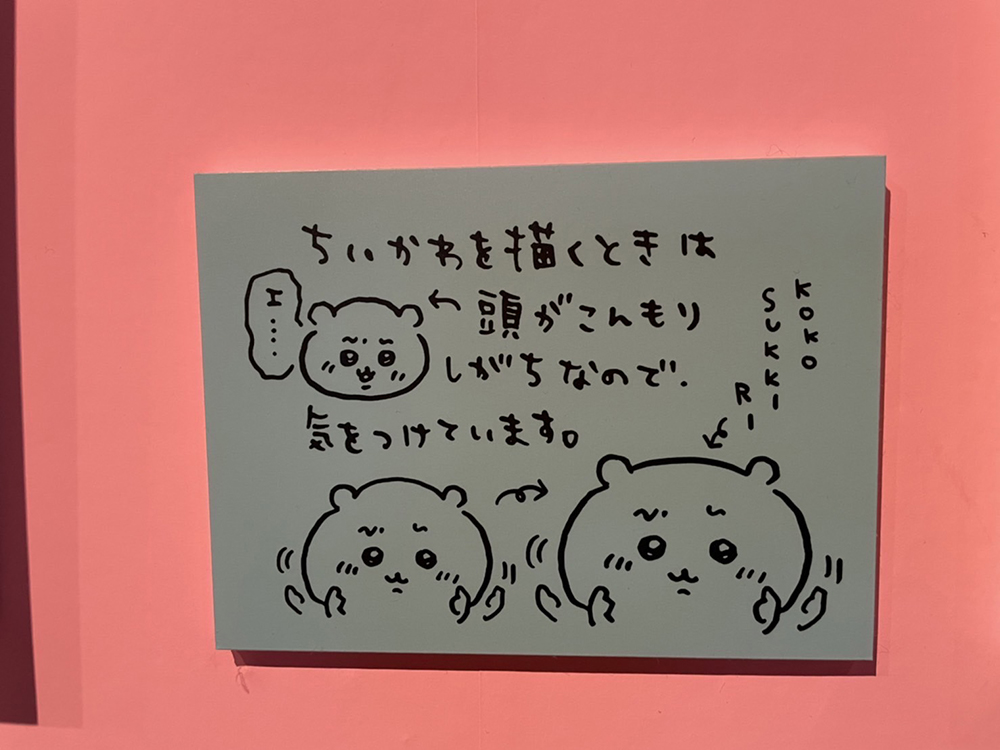 ちいかわを描くときは
エ....
←頭がこんもり
しがちなので、
気をつけています。
KOKO
SUKKI
RI